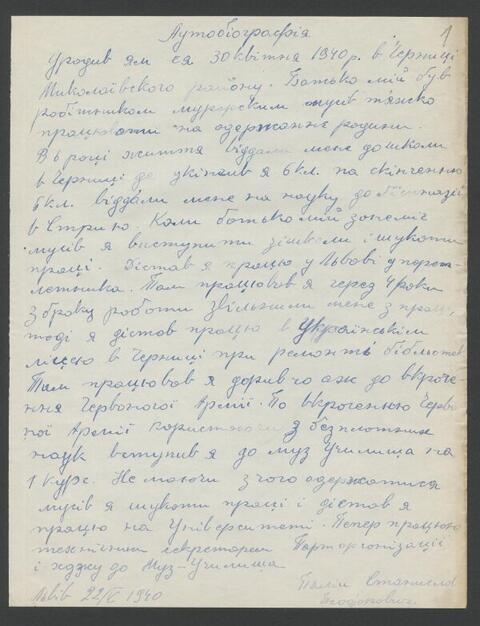 1
Аутобіографія
Уродив ям ся 30 квітня 1940 р. в Черниці
Миколаївского району. Батько мій був
робітником мулярским мусів тяжко
працювати на одержання родини.
В 6 році життя віддали мене до школи
в Черниці де укінчив я 6 кл. по скінченню
6 кл. віддали мене на науку до Гімназії
в Стрию. Коли батько мій занеміг
мусів я виступити зі школи і шукати
праці. Дістав я працю у Львові у
Там працював я через 4 роки
з браку роботи звільнили мене з праці,
тоді я дістав працю в Українськім
ліцею в Черниці при ремонті бібліотек
Там працював я доривчо аж до вкроче-
ння Червоної Армії. По вкроченню Черво
ної Армії користаючи з безплатних
наук вступив я до муз училища на
1 курс. Не маючи з чого одержатися
мусів я шукати праці і дістав я
працю на Університеті. Тепер працюю
технічним секретарем Парторганізації
і ходжу до Муз-Училища.
Львів 22/V 1940
Палій